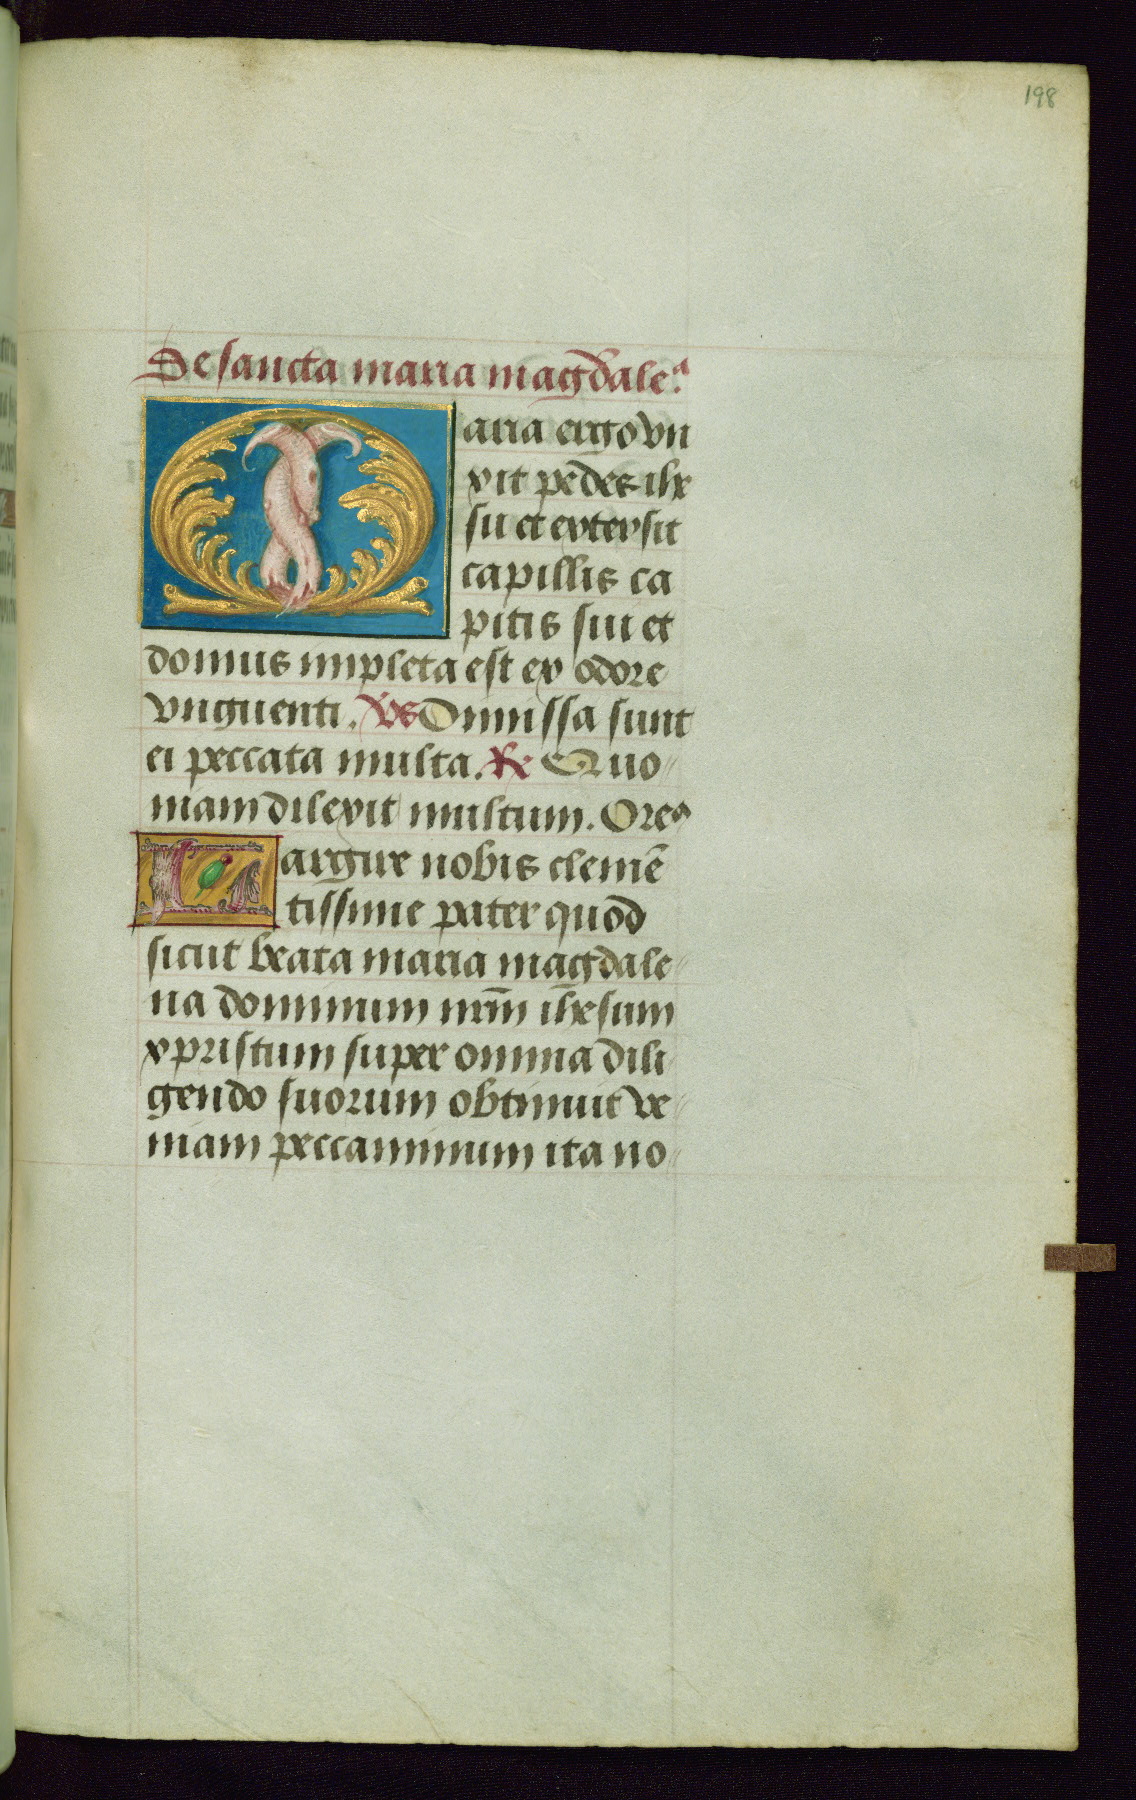 198
De sancta maria magdale.ᵃ
Maria ergo vn
xit pedes ihe
su et extersit
capillis ca
pitis sui et
domus impleta est ex odore
vnguenti. Vs Dimissa sunt
ei peccata multa. Re Quo
niam dilexit multum. Oreᵒ
Largire nobis clemē
tissime pater quod
sicut beata maria magdale
na dominum nr̄m ihesum
xpristum super omnia dili
gendo suorum obtinuit ve
niam peccaminum ita no